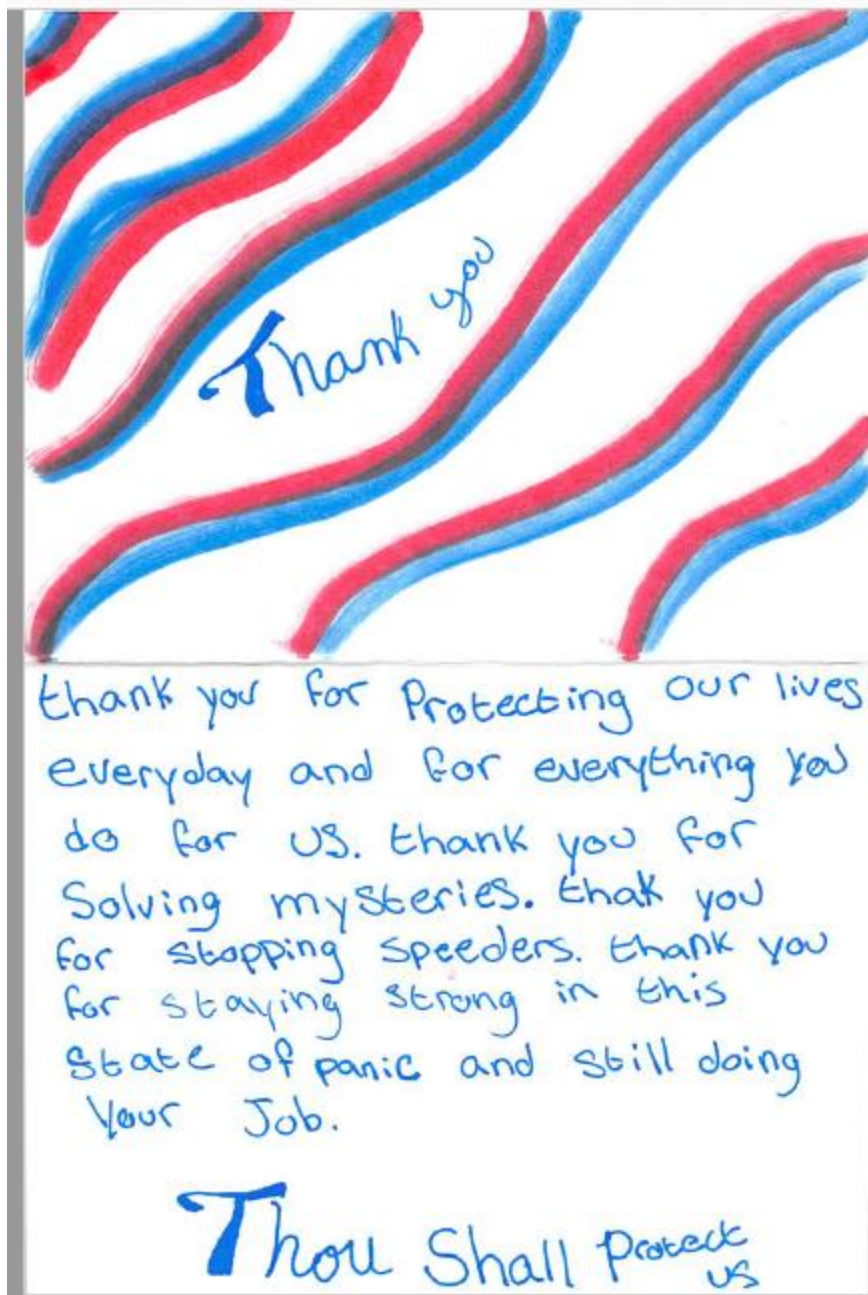 Thank you
thank you for Protecting our lives
everyday and for everything you
do for us. thank you for
Solving mysteries. thak you
for stopping speeders. thank you
for staying strong in this
state of panic and still doing
Your Job.
Thou Shall Protect
us